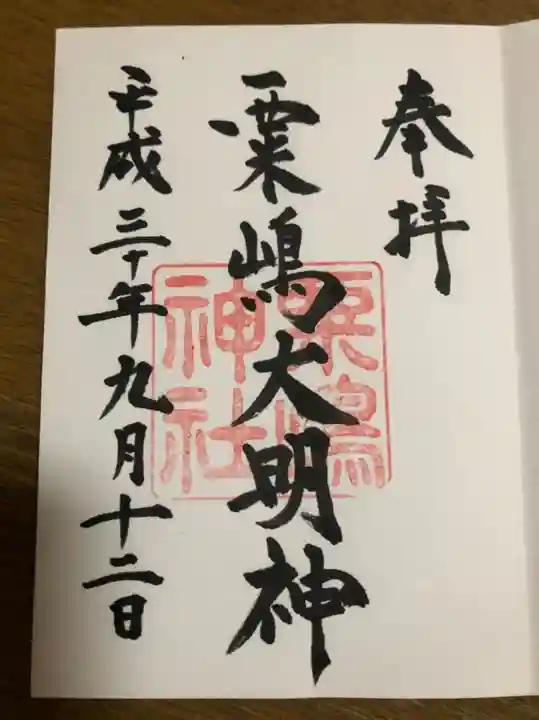 奉拝
粟嶋大明神
粟嶋神社
平成三十年九月十二日